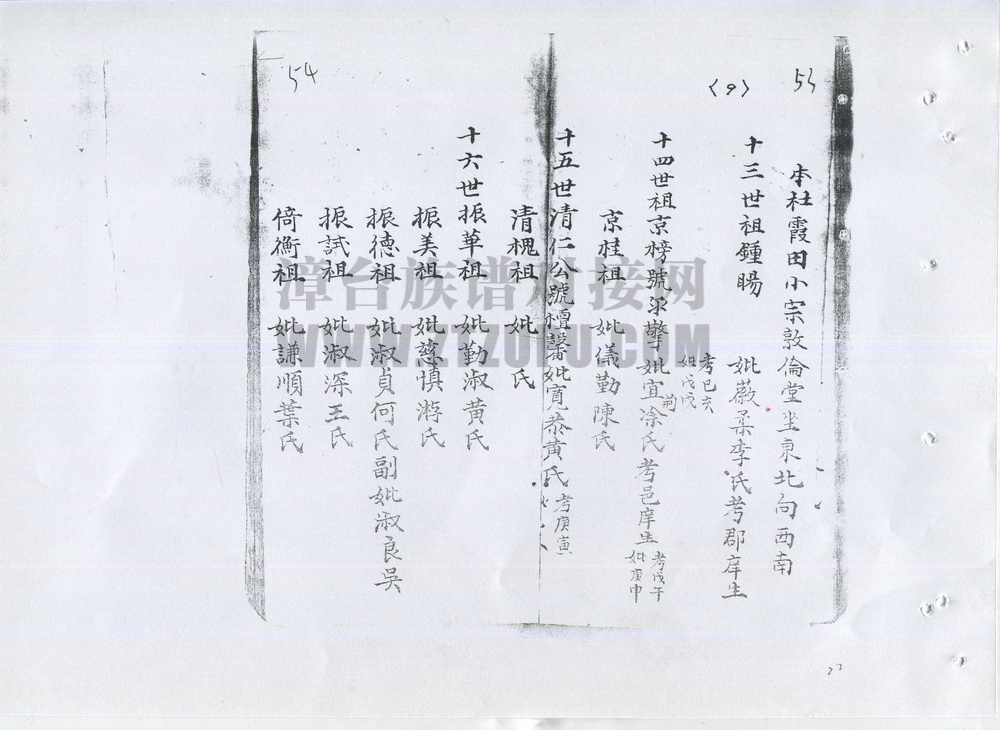 53
〈9〉
本社霞田小宗敦倫堂坐東北向西南
十三世祖鍾暘 妣薇柔李氏考郡庠生
考己亥
妣戊戌
十四世祖京榜號 擎 妣宜 涂氏考邑庠生
考戊午
妣庚申
京桂祖 妣儀勤陳氏
十五世清仁公號檀馨妣寬恭黃氏 考庚寅
清槐祖 妣 氏
十六世振華祖 妣勤淑黃氏
振美祖 妣慈慎游氏
振德祖 妣淑貞何氏副妣淑良吳
振試祖 妣淑深王氏
倚衡祖 妣謙順葉氏
54
漳台族谱对接网